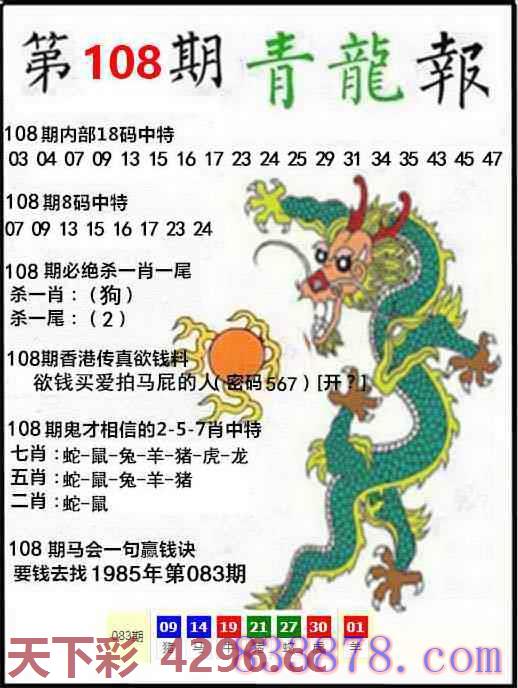 第108期青龍報
108期内部18码中特
03 04 07 09 13 15 16 17 23 24 25 29 31 34 35 43 45 47
108期8码中特
07 09 13 15 16 17 23 24
108期必绝杀一肖一尾
杀一肖：（狗）
杀一尾：（2）
108期香港传真欲钱料
欲钱买爱拍马屁的人（密码567）[开？]
108期鬼才相信的2-5-7肖中特
七肖：蛇-鼠-兔-羊-猪-虎-龙
五肖：蛇-鼠-兔-羊-猪
二肖：蛇-鼠
108期马会一句赢钱诀
要钱去找1985年第083期
083期 09 14 19 21 27 30 01
猪 马 牛 蛇 虎 羊
天下彩 4296.cc 838878.com